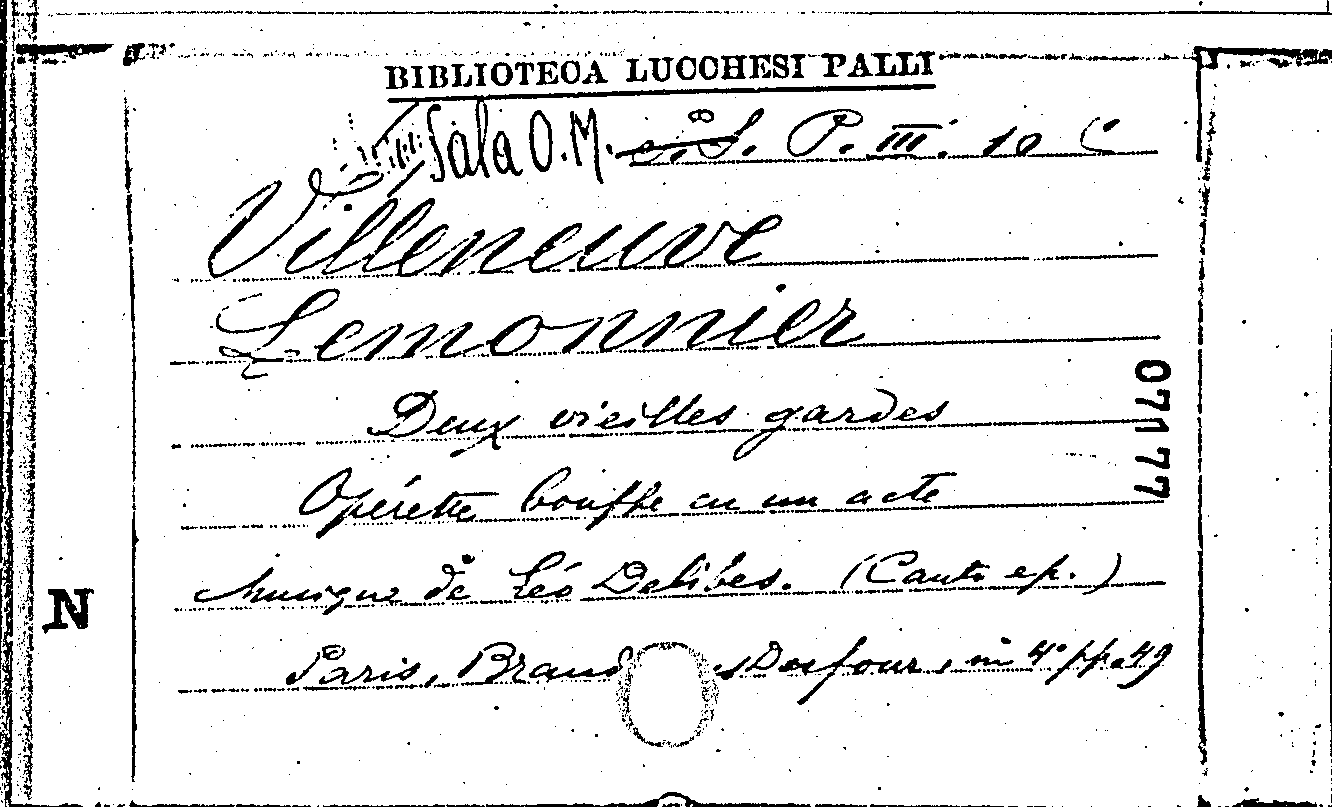 BIBLIOTECA LUCCHESI PALLI
Sala O.M. S. P. III. 10 C
Villeneuve
Lemonnier
Deux vieilles gardes
Opérette bouffe en un acte
Musique de Léo Delibes. (Canto e p.)
Paris, Brand Dufour, in 4° pp. 49
07177
N